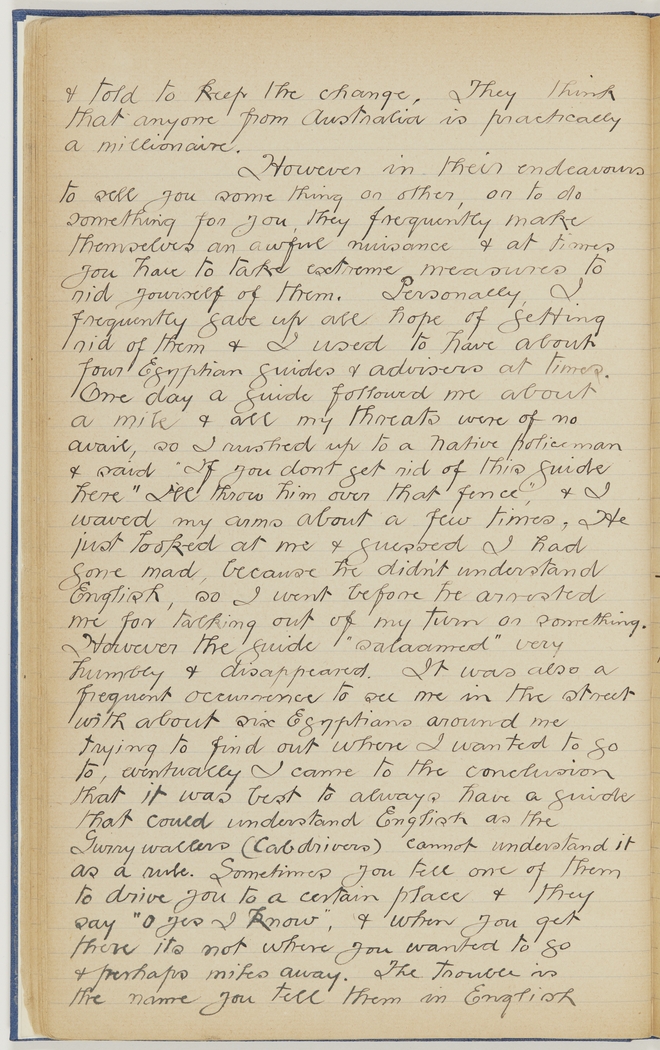 & told to keep the change. They think
that anyone from Australia is practically
a millionaire.
However in their endeavours
to sell you some thing or other, or to do
something for you, they frequently make
themselves an awful nuisance & at times
you have to take extreme measures to
rid yourself of them. Personally, I
frequently gave up all hope of getting
rid of them & I used to have about
four Egyptian guides & advisers at times.
One day a guide followed me about
a mile & all my threats were of no
avail, so I rushed up to a native policeman
& said "If you dont get rid of this guide
here" I'll throw him over that fence", & I
waved my arms about a few times. He
just looked at me & guessed I had
gone mad, because he didn't understand
English, so I went before he arrested
me for talking out of my turn or something.
However the guide "salaamed" very
humbly & disappeared. It was also a
frequent occurrence to see me in the street
with about six Egyptians around me
trying to find out where I wanted to go
to, eventually I came to the conclusion
that it was best to always have a guide
that could understand English as the
Gurrywallers (Cabdrivers) cannot understand it
as a rule. Sometimes you tell one of them
to drive you to a certain place & they
say "O yes I know", & when you get
there its not where you wanted to go
& perhaps miles away. The trouble is
the name you tell them in English